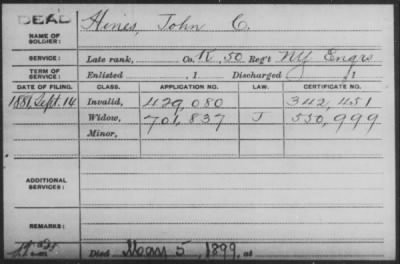 DEAD
NAME OF SOLDIER: Hines, John C.
SERVICE: Late rank, Co. K, 50 Reg't NY Engrs
TERM OF SERVICE: Enlisted , 1 Discharged , 1
DATE OF FILING. CLASS. APPLICATION NO. LAW. CERTIFICATE NO.
1881, Sept. 14 Invalid, 429,080 342,451
Widow, 701,837 J 550,999
Minor,
ADDITIONAL SERVICES:
REMARKS:
Died May 5, 1899, at